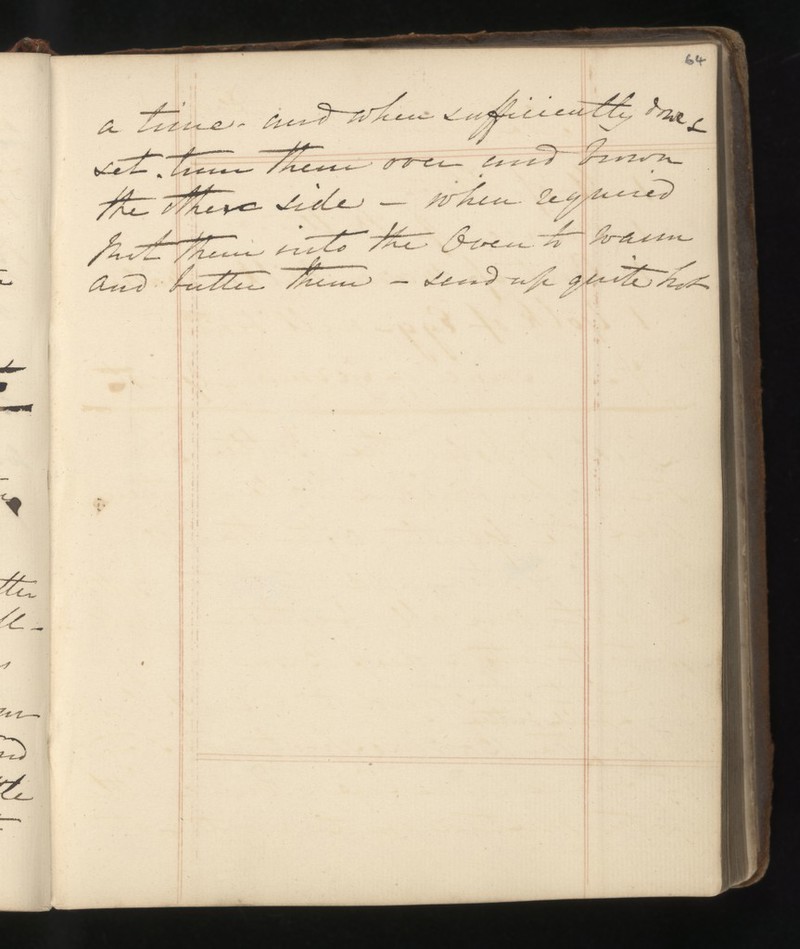 64
a time - and when sufficiently done &
set . turn them over and brown
the other side - when required
put them into the Oven to warm
and butter them - send up quite hot